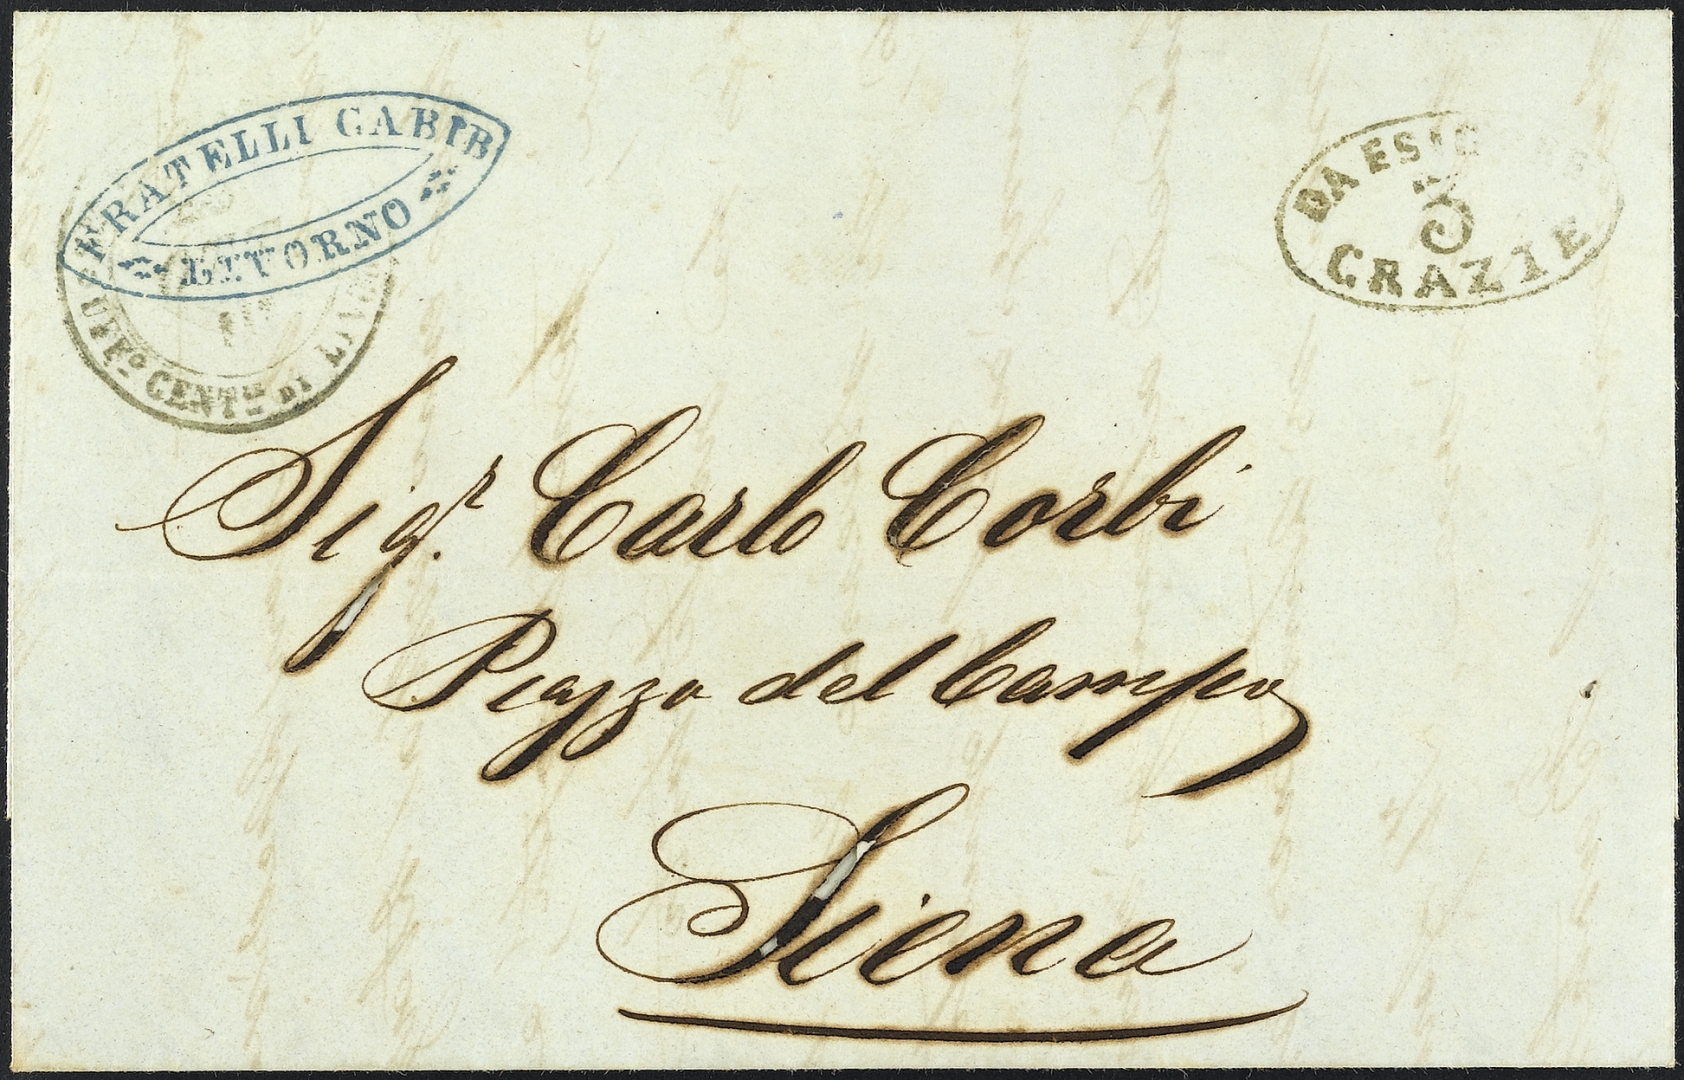 FRATELLI GABIB
LIVORNO
UFFº CENTLE DI
DA ESIG
GRAZIE
Sigr. Carlo Corbi
Piazza del Campo
Siena